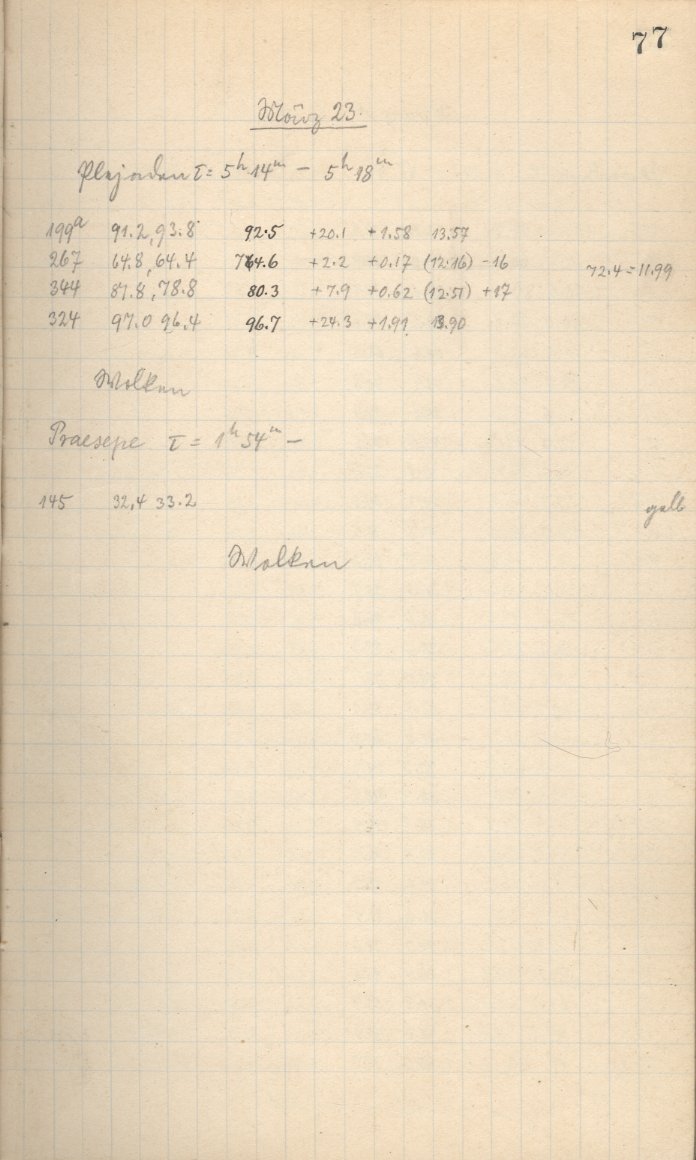 77
März 23.
Plejaden τ = 5ʰ 14ᵐ – 5ʰ 18ᵐ
199ᵃ 91.2, 93.8 92.5 +20.1 +1.58 13.57
267 64.8, 64.4 64.6 +2.2 +0.17 (12.16) -16 72.4 = 11.99
344 81.8, 78.8 80.3 +7.9 +0.62 (12.51) +17
324 97.0 96.4 96.7 +24.3 +1.91 13.90
Wolken
Praesepe τ = 1ʰ 54ᵐ –
145 32,4 33.2 gelb
Wolken